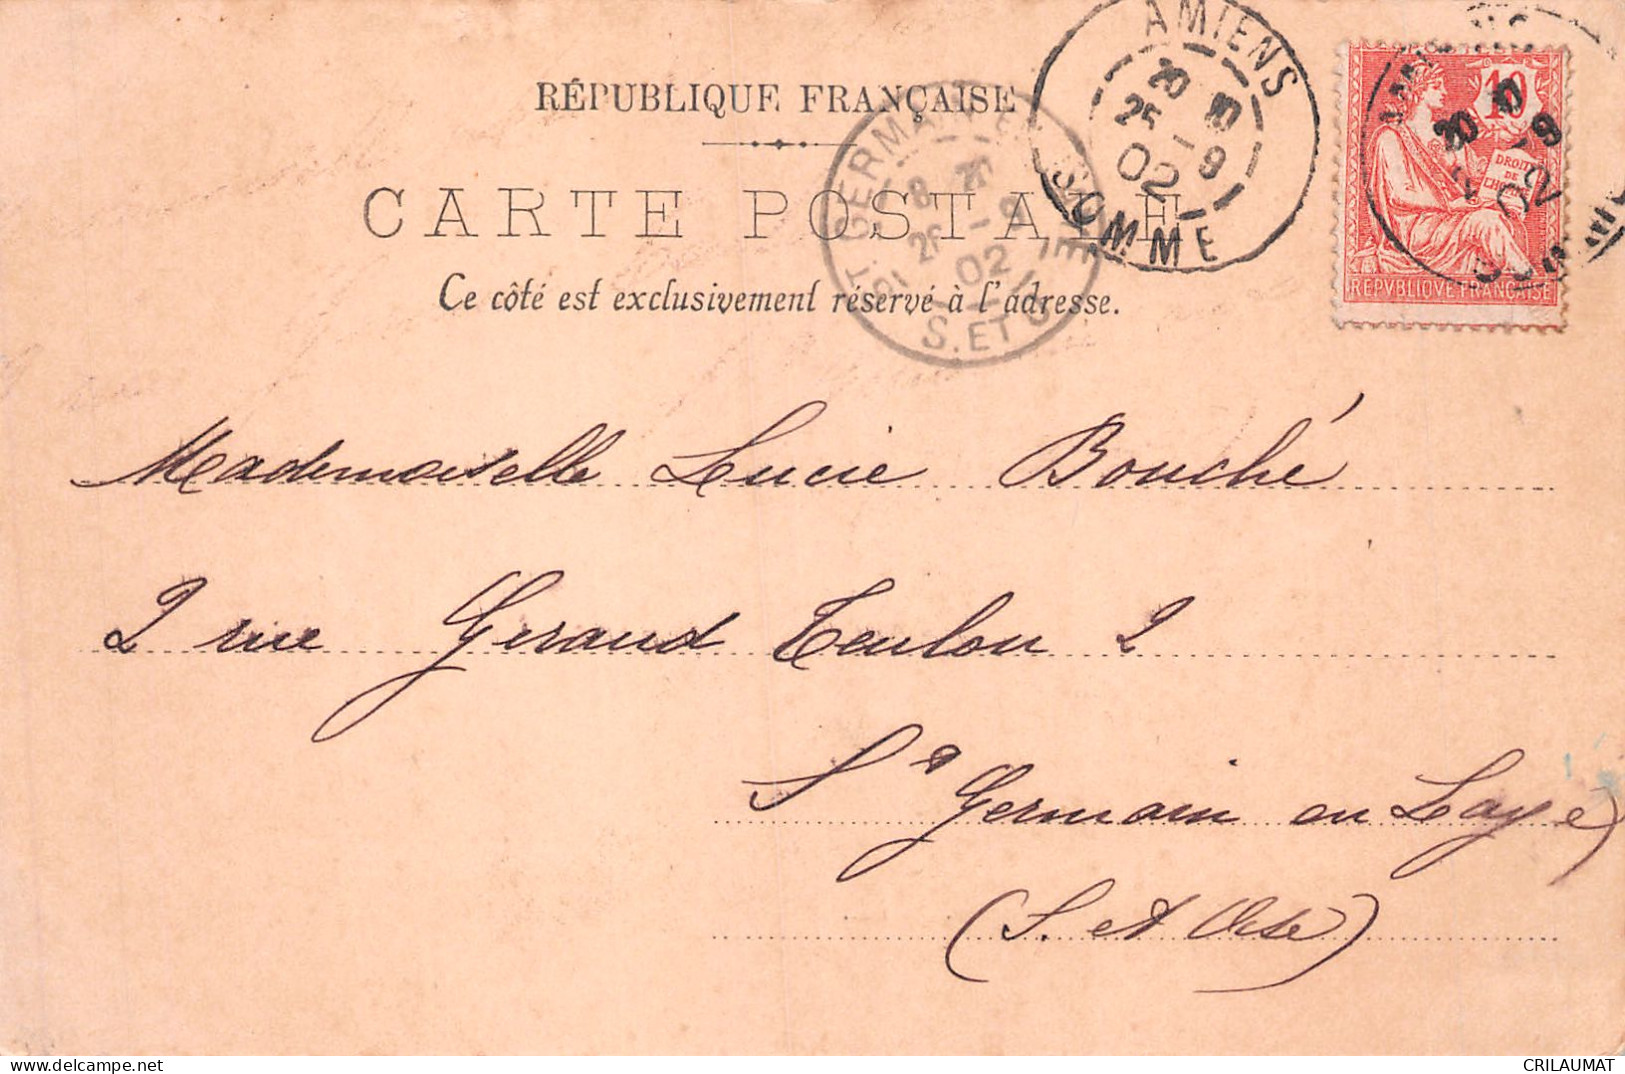 RÉPUBLIQUE FRANÇAISE
CARTE POSTALE
Ce côté est exclusivement réservé à l'adresse.
AMIENS
20 10
25 -9
02
SOMME
ST. GERMAIN
8
26 -9
02
S. ET O
10
DROITS
DE
L'HOMME
REPVBLIQVE FRANÇAISE
Mademoiselle Lucie Bouché
2 rue Geraud Teulon 2
St Germain en Laye
(S. et Oise)
CRILAUMAT